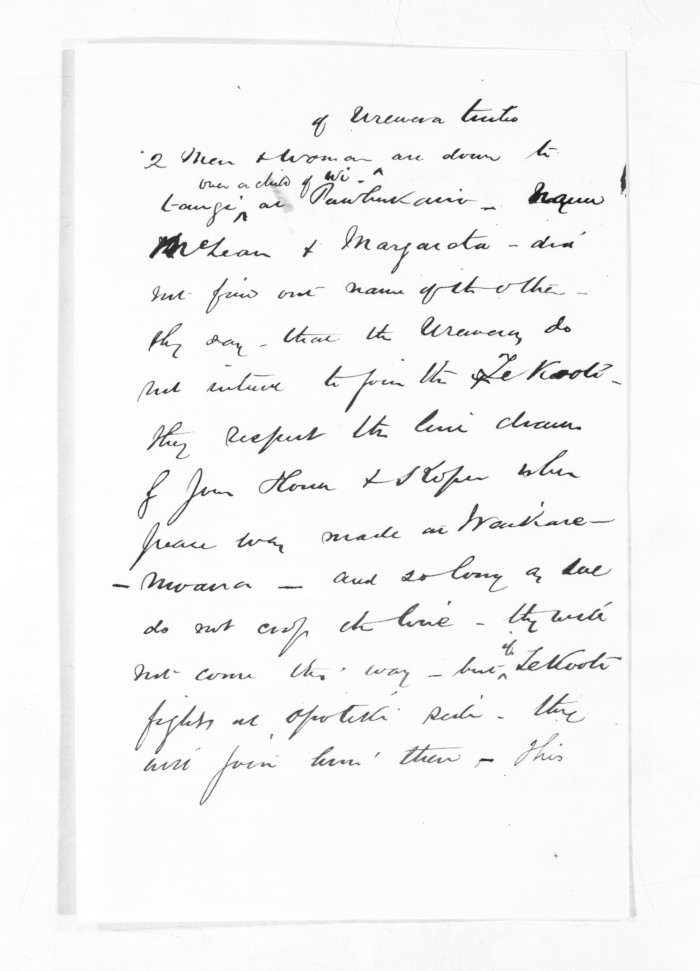 of Urewera
2 Men & Woman are down to
over a child of Wi -
tangi at -
McLean & Margareta - did
not find out name of the other -
they say - that the Urewera do
not intend to join the Te Kooti -
they respect the line drawn
by John & when
peace was made at Waikare -
- Moana - and so long as we
do not cross the line - they will
not come this way - but if Te Kooti
fights at Opotiki side - they
will join him then - This